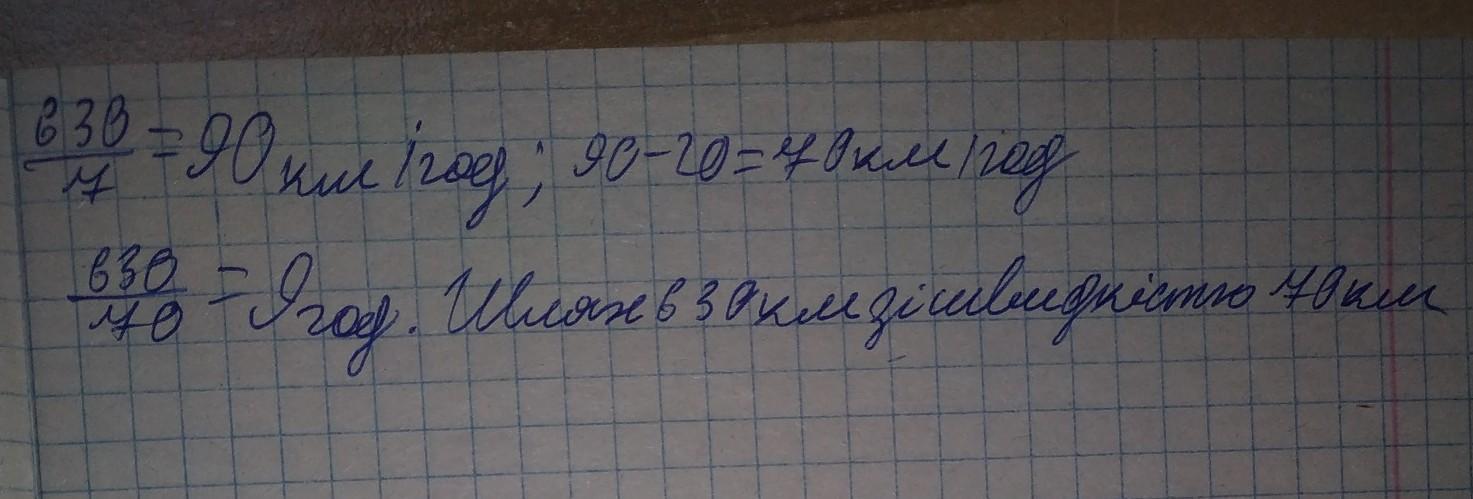 630/7 = 90 км/год; 90-20=70 км/год
630/70 = 9 год. Шлях 630 км зі швидкістю 70 км